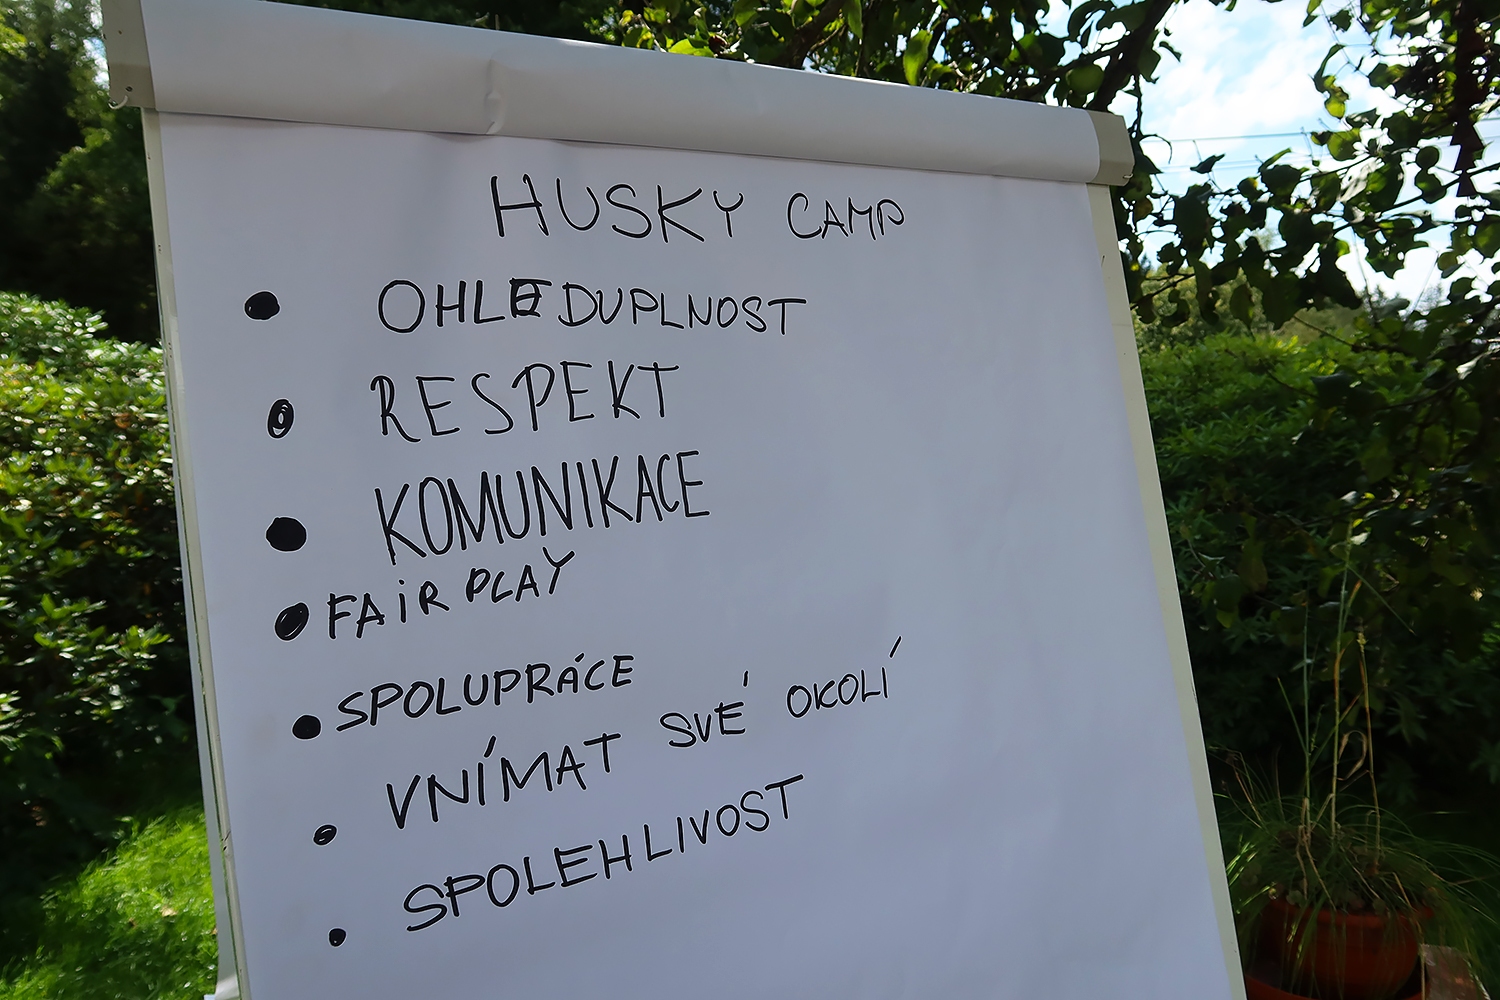 HUSKY CAMP
• OHLEDUPLNOST
• RESPEKT
• KOMUNIKACE
• FAiR PLAY
• SPOLUPRÁCE
• VNÍMAT SVÉ OKOLÍ
• SPOLEHLIVOST